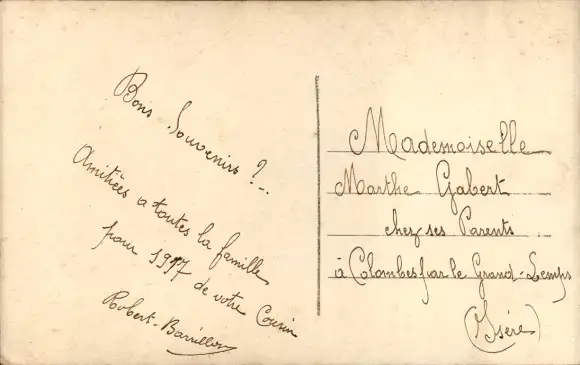 Bons Souvenirs ?..
Amitiées a toutes la famille
pour 1917 de votre Cousin
Robert-Barrillon
Mademoiselle
Marthe Gabert
chez ses Parents.
à Colombes par le Grand-Lemps
(Isère)